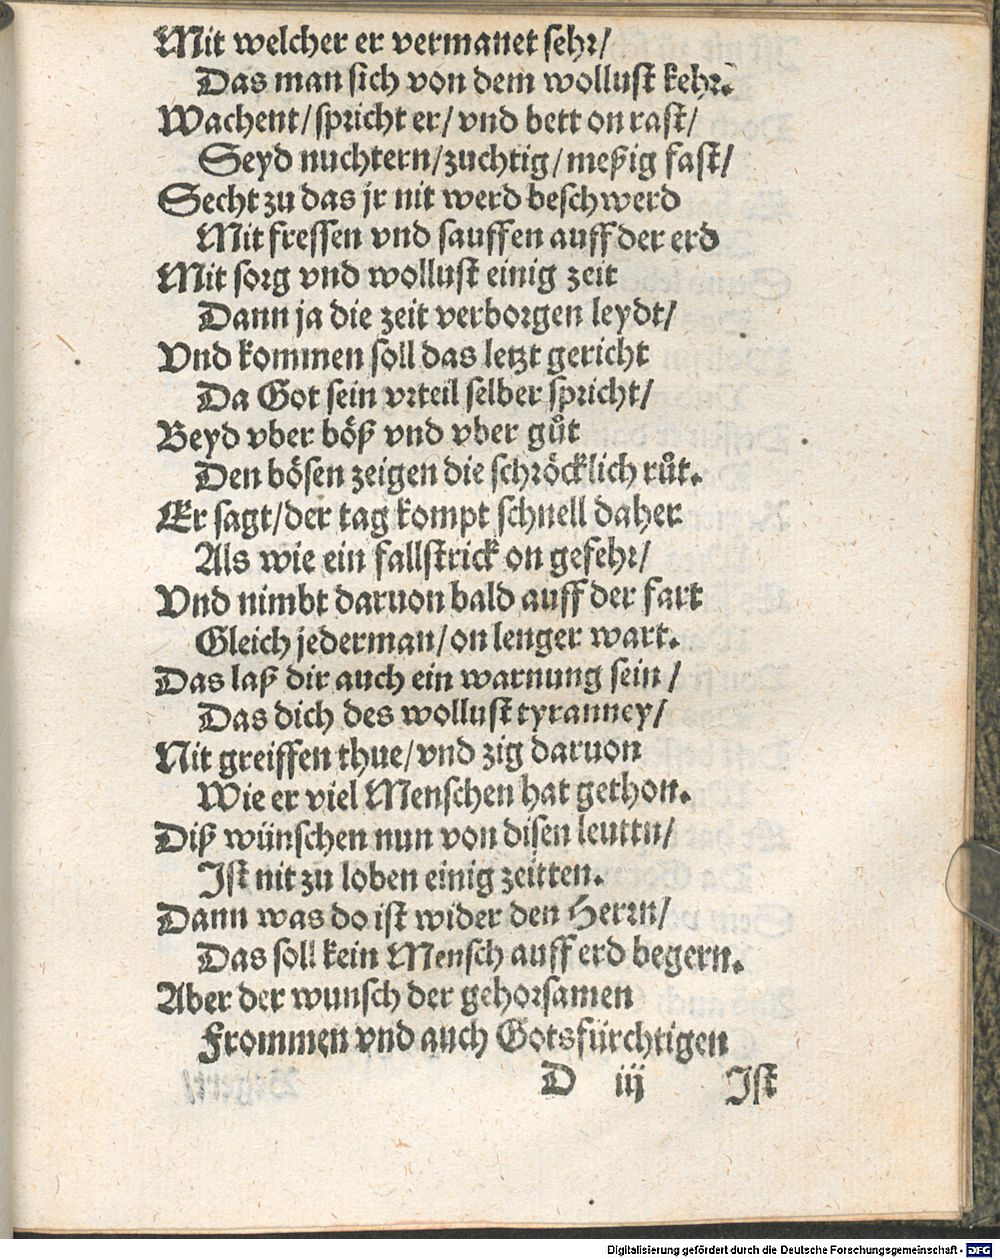 Mit welcher er vermanet sehr/
Das man sich von dem wollust kehr.
Wachent/spricht er/vnd bett on rast/
Seyd nuchtern/zuchtig/meßig fast/
Secht zu das jr nit werd beschwerd
Mit fressen vnd sauffen auff der erd
Mit sorg vnd wollust einig zeit
Dann ja die zeit verborgen leydt/
Vnd kommen soll das letzt gericht
Da Got sein vrteil selber spricht/
Beyd vber böß vnd vber gůt
Den bösen zeigen die schröcklich růt.
Er sagt/der tag kompt schnell daher
Als wie ein fallstrick on gefehr/
Vnd nimbt daruon bald auff der fart
Gleich jederman/on lenger wart.
Das laß dir auch ein warnung sein/
Das dich des wollust tyranney/
Nit greiffen thue/vnd zig daruon
Wie er viel Menschen hat gethon.
Diß wünschen nun von disen leuttn/
Ist nit zu loben einig zeitten.
Dann was do ist wider den Herrn/
Das soll kein Mensch auff erd begern.
Aber der wunsch der gehorsamen
Frommen vnd auch Gotsfürchtigen
D iij Ist
Digitalisierung gefördert durch die Deutsche Forschungsgemeinschaft - DFG